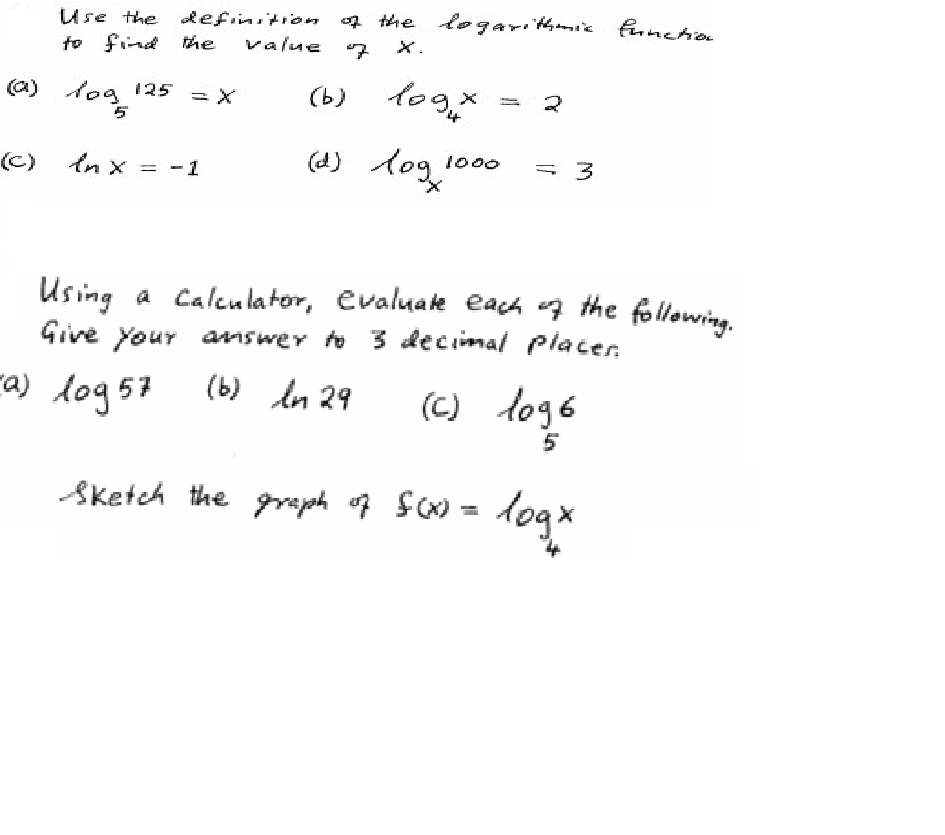 Use the definition of the logarithmic function
to find the value of x.
(a) log₅ 125 = x (b) log₄ x = 2
(c) ln x = -1 (d) logₓ 1000 = 3
Using a calculator, evaluate each of the following.
Give your answer to 3 decimal places.
(a) log 57 (b) ln 29 (c) log₅ 6
Sketch the graph of f(x) = log₄ x